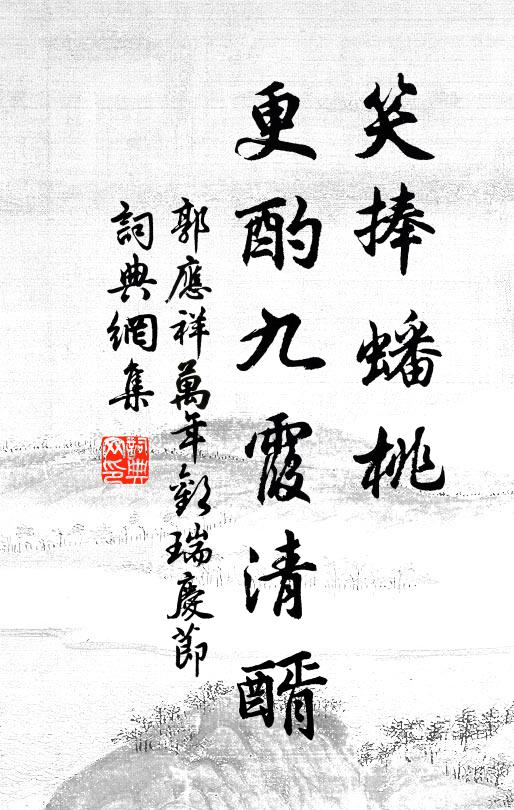 笑捧蟠桃
更酌九霞清醑
郭應祥萬年歡瑞慶節
詞典網集
詞典網印